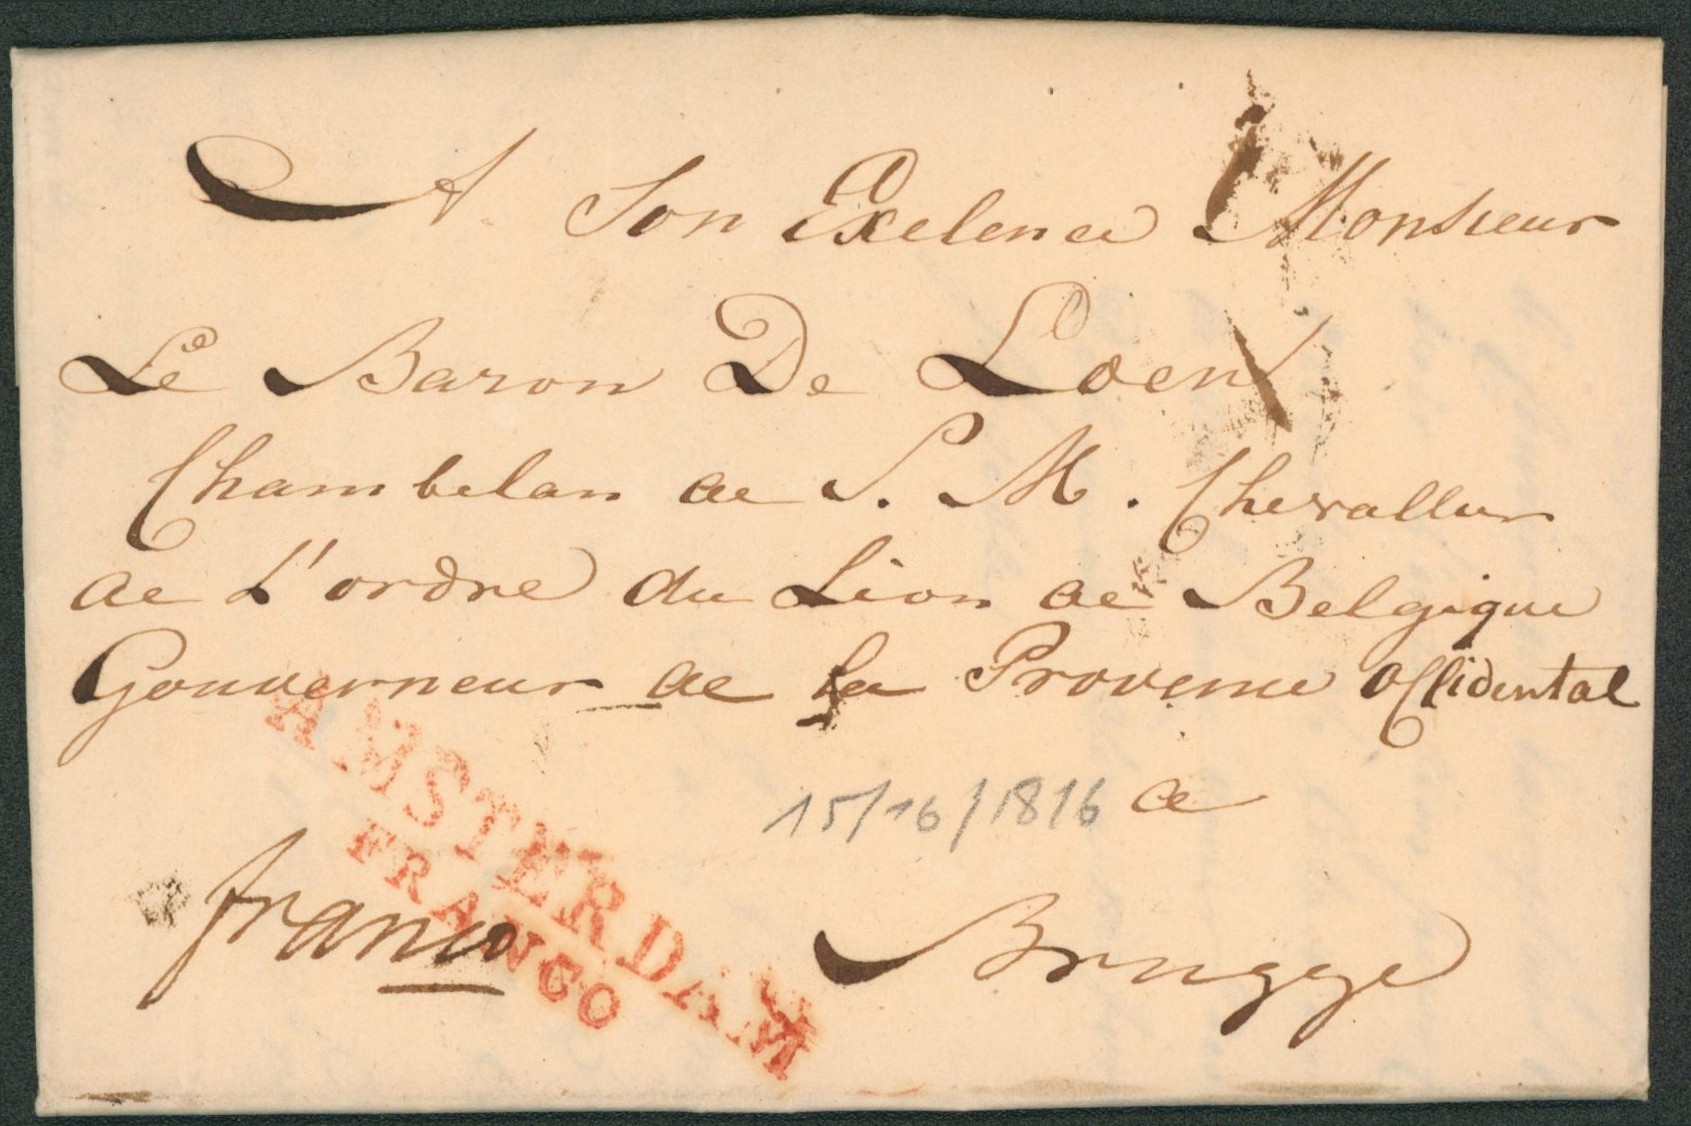 A Son Exelence Monsieur
Le Baron De Loen
Chambelan de S. M. Chevallier
de L'ordre du Lion de Belgique
Gouverneur de la Provence Occidental
a
15/16/1816
Brugge
franco
AMSTERDAM
FRANCO